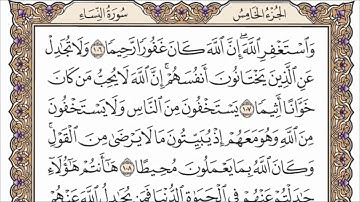 الجزء الخامس
سورة النساء
وَٱسْتَغْفِرِ ٱللَّهَۖ إِنَّ ٱللَّهَ كَانَ غَفُورًا رَّحِيمًا ١٠٦ وَلَا تُجَٰدِلْ
عَنِ ٱلَّذِينَ يَخْتَانُونَ أَنفُسَهُمْۚ إِنَّ ٱللَّهَ لَا يُحِبُّ مَن كَانَ
خَوَّانًا أَثِيمًا ١٠٧ يَسْتَخْفُونَ مِنَ ٱلنَّاسِ وَلَا يَسْتَخْفُونَ
مِنَ ٱللَّهِ وَهُوَ مَعَهُمْ إِذْ يُبَيِّتُونَ مَا لَا يَرْضَىٰ مِنَ ٱلْقَوْلِۚ
وَكَانَ ٱللَّهُ بِمَا يَعْمَلُونَ مُحِيطًا ١٠٨ هَٰٓأَنتُمْ هَٰٓؤُلَآءِ
جَٰدَلْتُمْ عَنْهُمْ فِي ٱلْحَيَوٰةِ ٱلدُّنْيَا فَمَن يُجَٰدِلُ ٱللَّهَ عَنْهُمْ